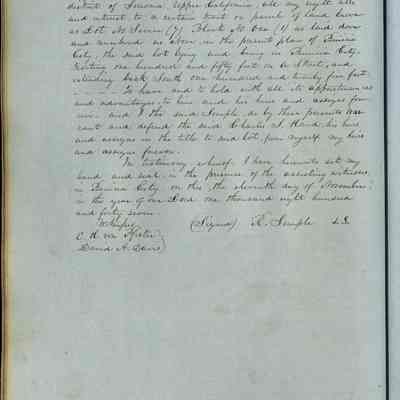 district of Sonoma, Upper California, all my right title
and interest to a certain tract or parcel of land known
as Lot No Seven (7) Block No One (1) as laid down
and numbered as above in the present plan of Benicia
City, the said lot lying and being in Benicia City.
fronting one hundred and fifty feet on a Street, and
extending back South one hundred and twenty five feet.
To have and to hold with all its appurtenances
and advantages to him and his heirs and assigns for-
ever. and I the said Semple, do by these presents war-
rant and defend the said Charles S. Hand, his heirs
and assigns in the title to said lot, from myself, my heirs
and assigns forever.
In testimony whereof I have hereunto set my
hand and seal, in the presence of the assisting witnesses,
in Benicia City, on this the eleventh day of November
in the year of our Lord one thousand eight hundred
and forty seven.
Witnesses
(Signed) R. Semple L.S.
C. H. von
David A. Davis